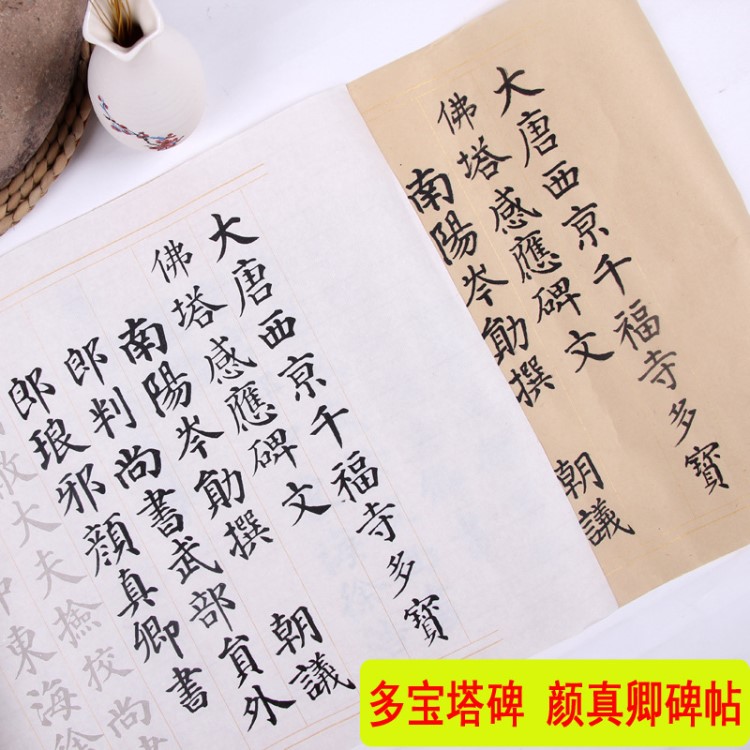 大唐西京千福寺多寶
佛塔感應碑文
南陽岑勛撰 朝議
大唐西京千福寺多寶
佛塔感應碑文
南陽岑勛撰 朝議
郎判尚書武部員外
郎琅邪顏真卿書
散大夫撿挍尚書
東海徐
多宝塔碑 颜真卿碑帖